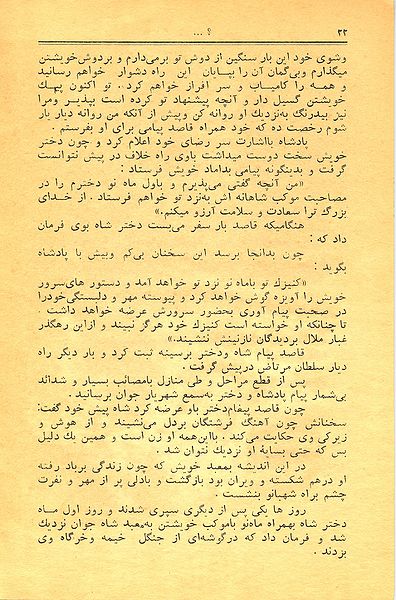 ۲۲
؟ ...
وشوی خود این بار سنگین از دوش تو برمی‌دارم و بردوش‌خویشتن
میگذارم وبی‌گمان آن را بپایان این راه دشوار خواهم رسانید
و همه را کامیاب و سر افراز خواهم کرد. تو اکنون پیک
خویشتن گسیل دار و آنچه پیشنهاد تو کرده است بپذیر ومرا
نیز بیدرنگ به‌نزدیك او روانه کن وپیش از آنکه من روانه دیار یار
شوم رخصت ده که خود همراه قاصد پیامی برای او بفرستم .
پادشاه بااشارت سر رضای خود اعلام کرد و چون دختر
خویش سخت دوست میداشت باوی راه خلاف در پیش نتوانست
گرفت و بدینگونه پیامی بداماد خویش فرستاد :
«من آنچه گفتی می‌پذیرم و باول ماه نو دخترم را در
مصاحبت موکب شاهانه اش به‌نزد تو خواهم فرستاد . از خدای
بزرگ ترا سعادت و سلامت آرزو میکنم.»
هنگامیکه قاصد بار سفر می‌بست دختر شاه بوی فرمان
داد که :
چون بدانجا برسد این سخنان بی‌کم وبیش با پادشاه
بگوید :
«کنیزك تو باماه نو نزد تو خواهد آمد و دستور های‌سرور
خویش را آویزه گوش خواهد کرد و پیوسته مهر و دلبستگی‌خودرا
در صحبت پیام آوری بحضور سرورش عرضه خواهد داشت
تا چنانکه او خواسته است کنیزك خود هرگز نبیند و ازاین رهگذر
غبار ملال بردیدگان نازنینش ننشیند.»
قاصد پیام شاه ودختر برسینه ثبت کرد و بار دیگر راه
دیار سلطان مرتاض درپیش گرفت .
پس از قطع مراحل و طی منازل بامصائب بسیار و شدائد
بی‌شمار پیام پادشاه و دختر به‌سمع شهریار جوان برسانید .
چون قاصد پیغام‌دختر باو عرضه کرد شاه پیش خود گفت:
سخنانش چون آهنگ فرشتگان بردل می‌نشیند و از هوش و
زیرکی وی حکایت می‌کند . بااین‌همه او زن است و همین یك دلیل
بس که حتی بسایهٔ او نزدیك نتوان شد .
در این اندیشه بمعبد خویش که چون زندگی برباد رفته
او درهم شکسته و ویران بود بازگشت و بادلی پر از مهر و نفرت
چشم براه شهبانو بنشست .
روز ها یکی پس از دیگری سپری شدند و روز اول ماه
دختر شاه بهمراه ماه‌نو باموکب خویشتن به‌معبد شاه جوان نزدیك
شد و فرمان داد که درگوشه‌ای از جنگل خیمه وخرگاه وی
بزدند .